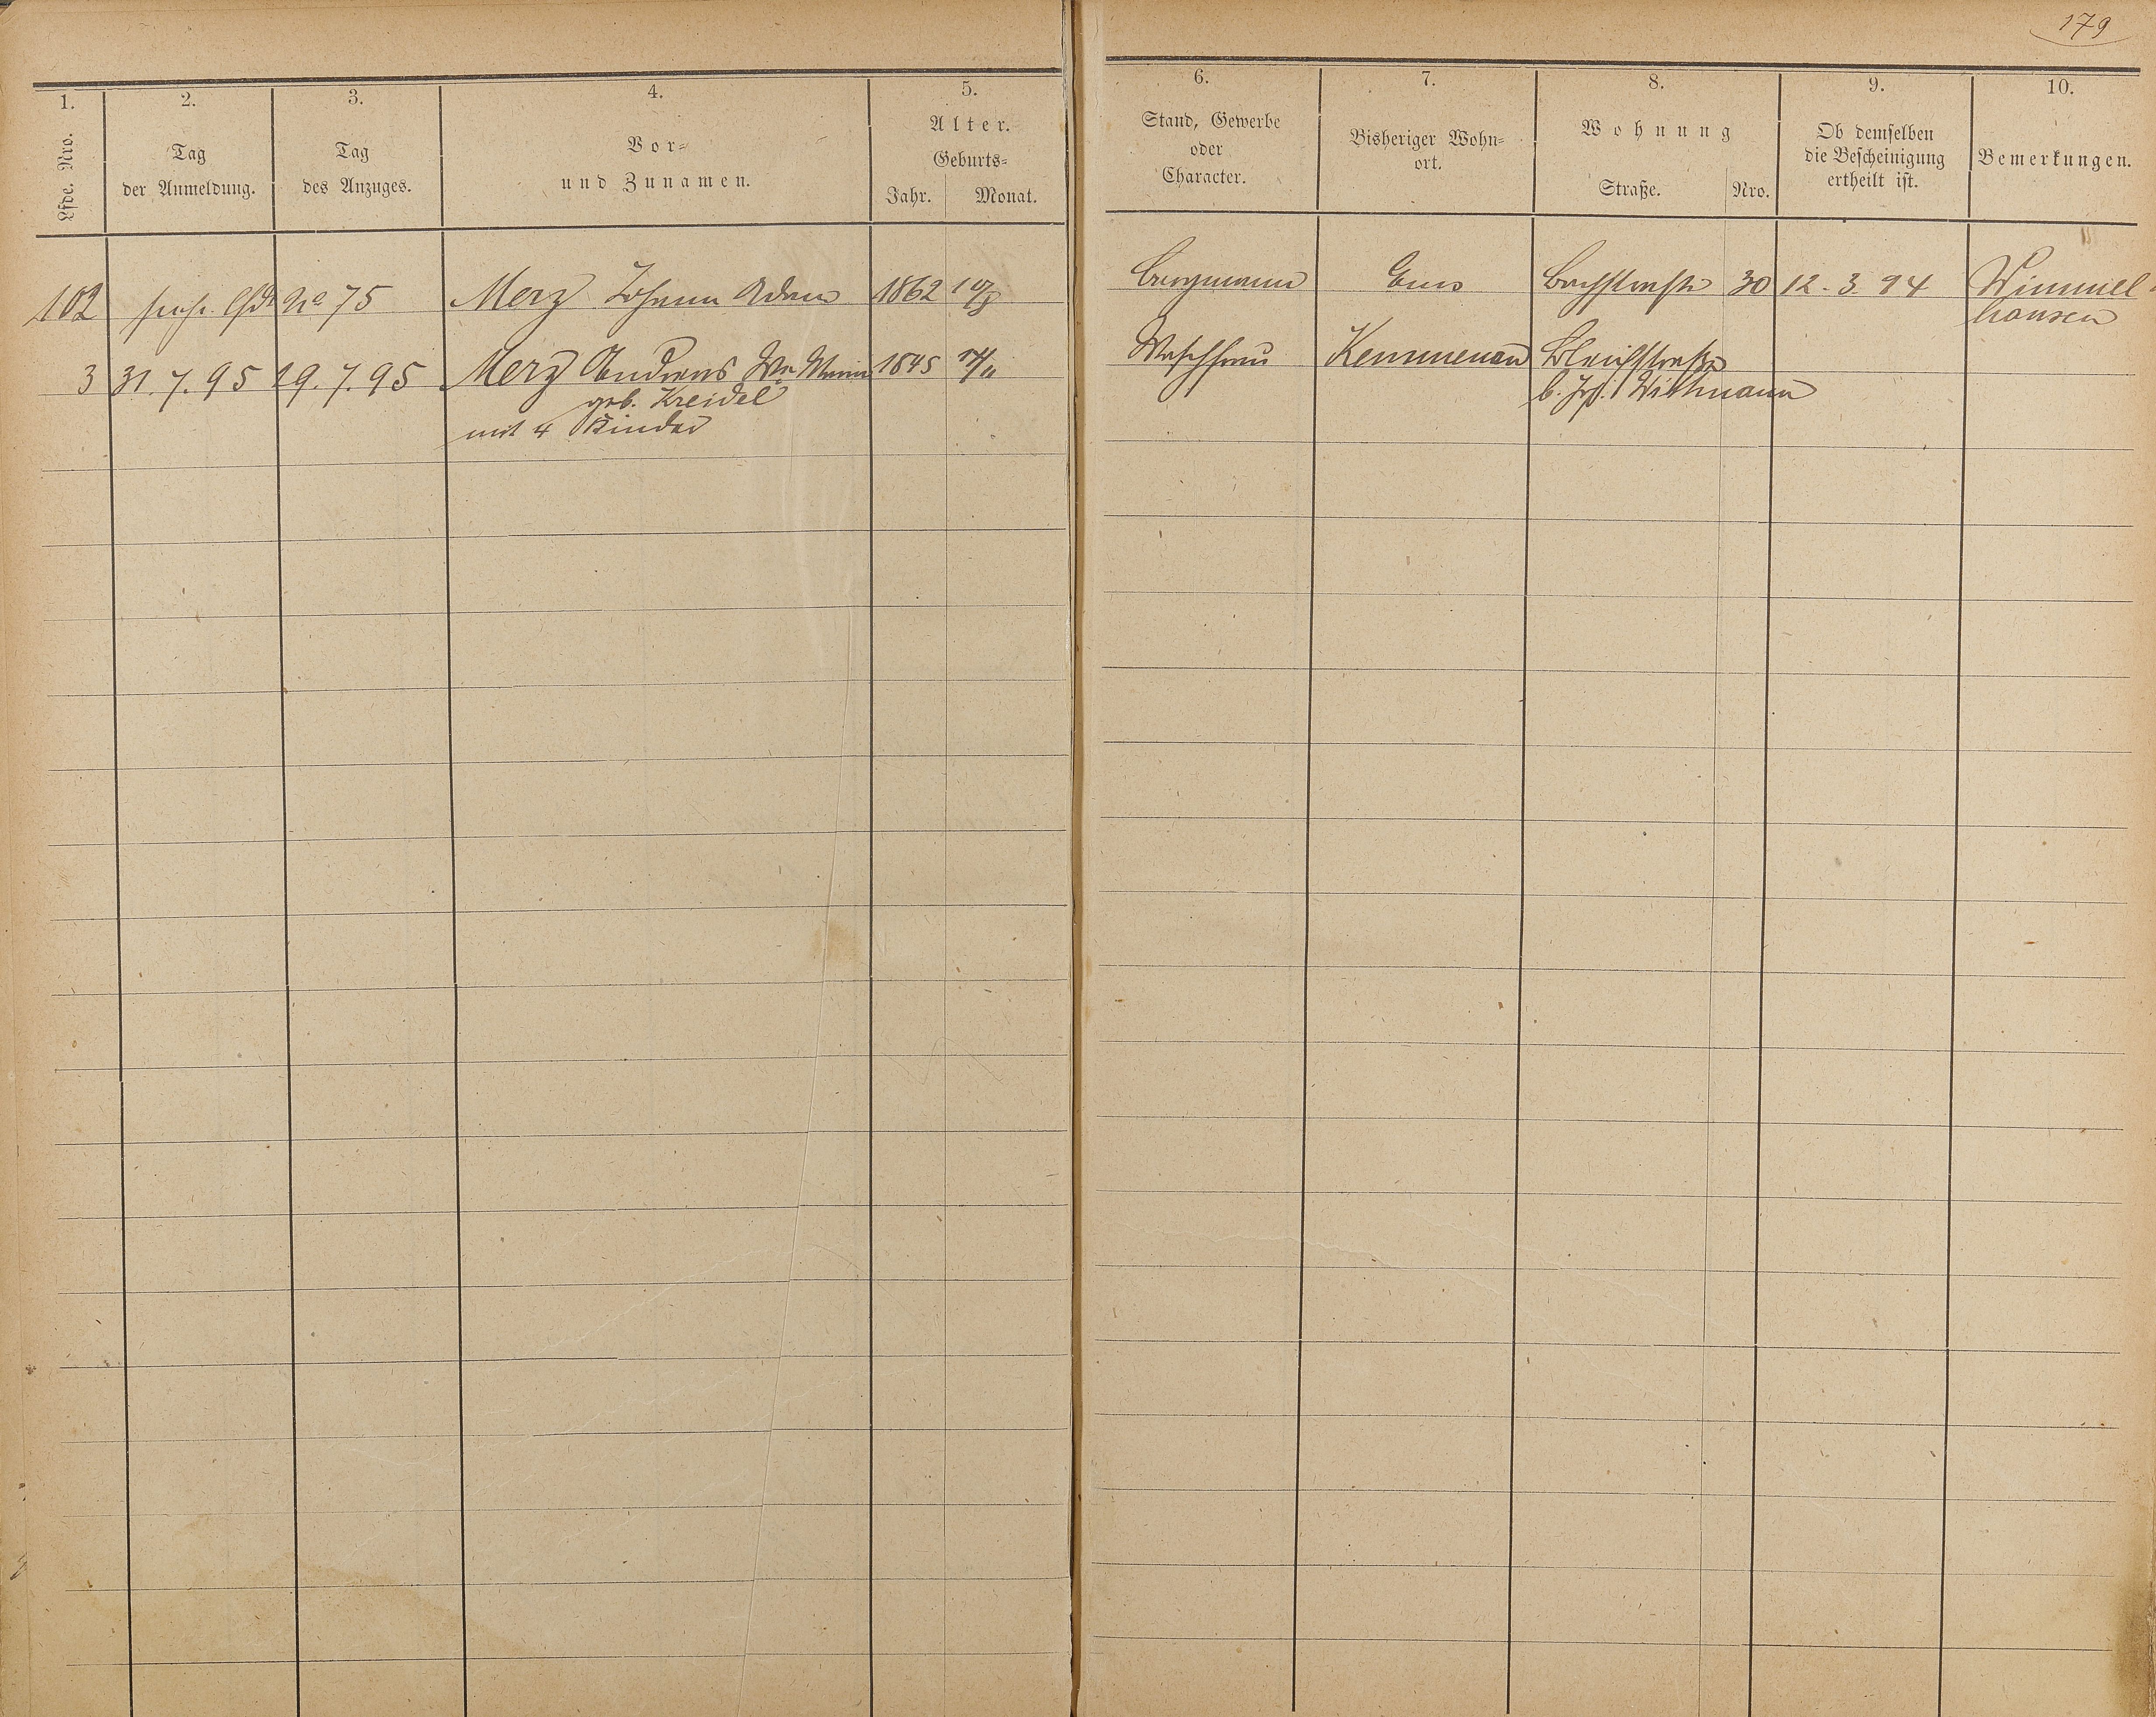 179
1. 2. 3. 4. 5. 6. 7. 8. 9. 10.
Lfde. Nro.
Tag
der Anmeldung.
Tag
des Anzuges.
Vor-
und Zunamen.
Alter.
Geburts-
Jahr. Monat.
Stand, Gewerbe
oder
Character.
Bisheriger Wohn-
ort.
Wohnung
Straße. Nro.
Ob demselben
die Bescheinigung
ertheilt ist.
Bemerkungen.
102 siehe lfde No 75 Merz Johann Adam 1862 10/8 Bergmann Ems Bachstraße 30 12. 3. 94 Wimmel-
hausen
3 31. 7. 95 29. 7. 95 Merz Andreas Ww 1845 Waschfrau Kemmenau Bleichstraße
geb. Kreidel b. Jos. Wittmann
mit 4 Kinder